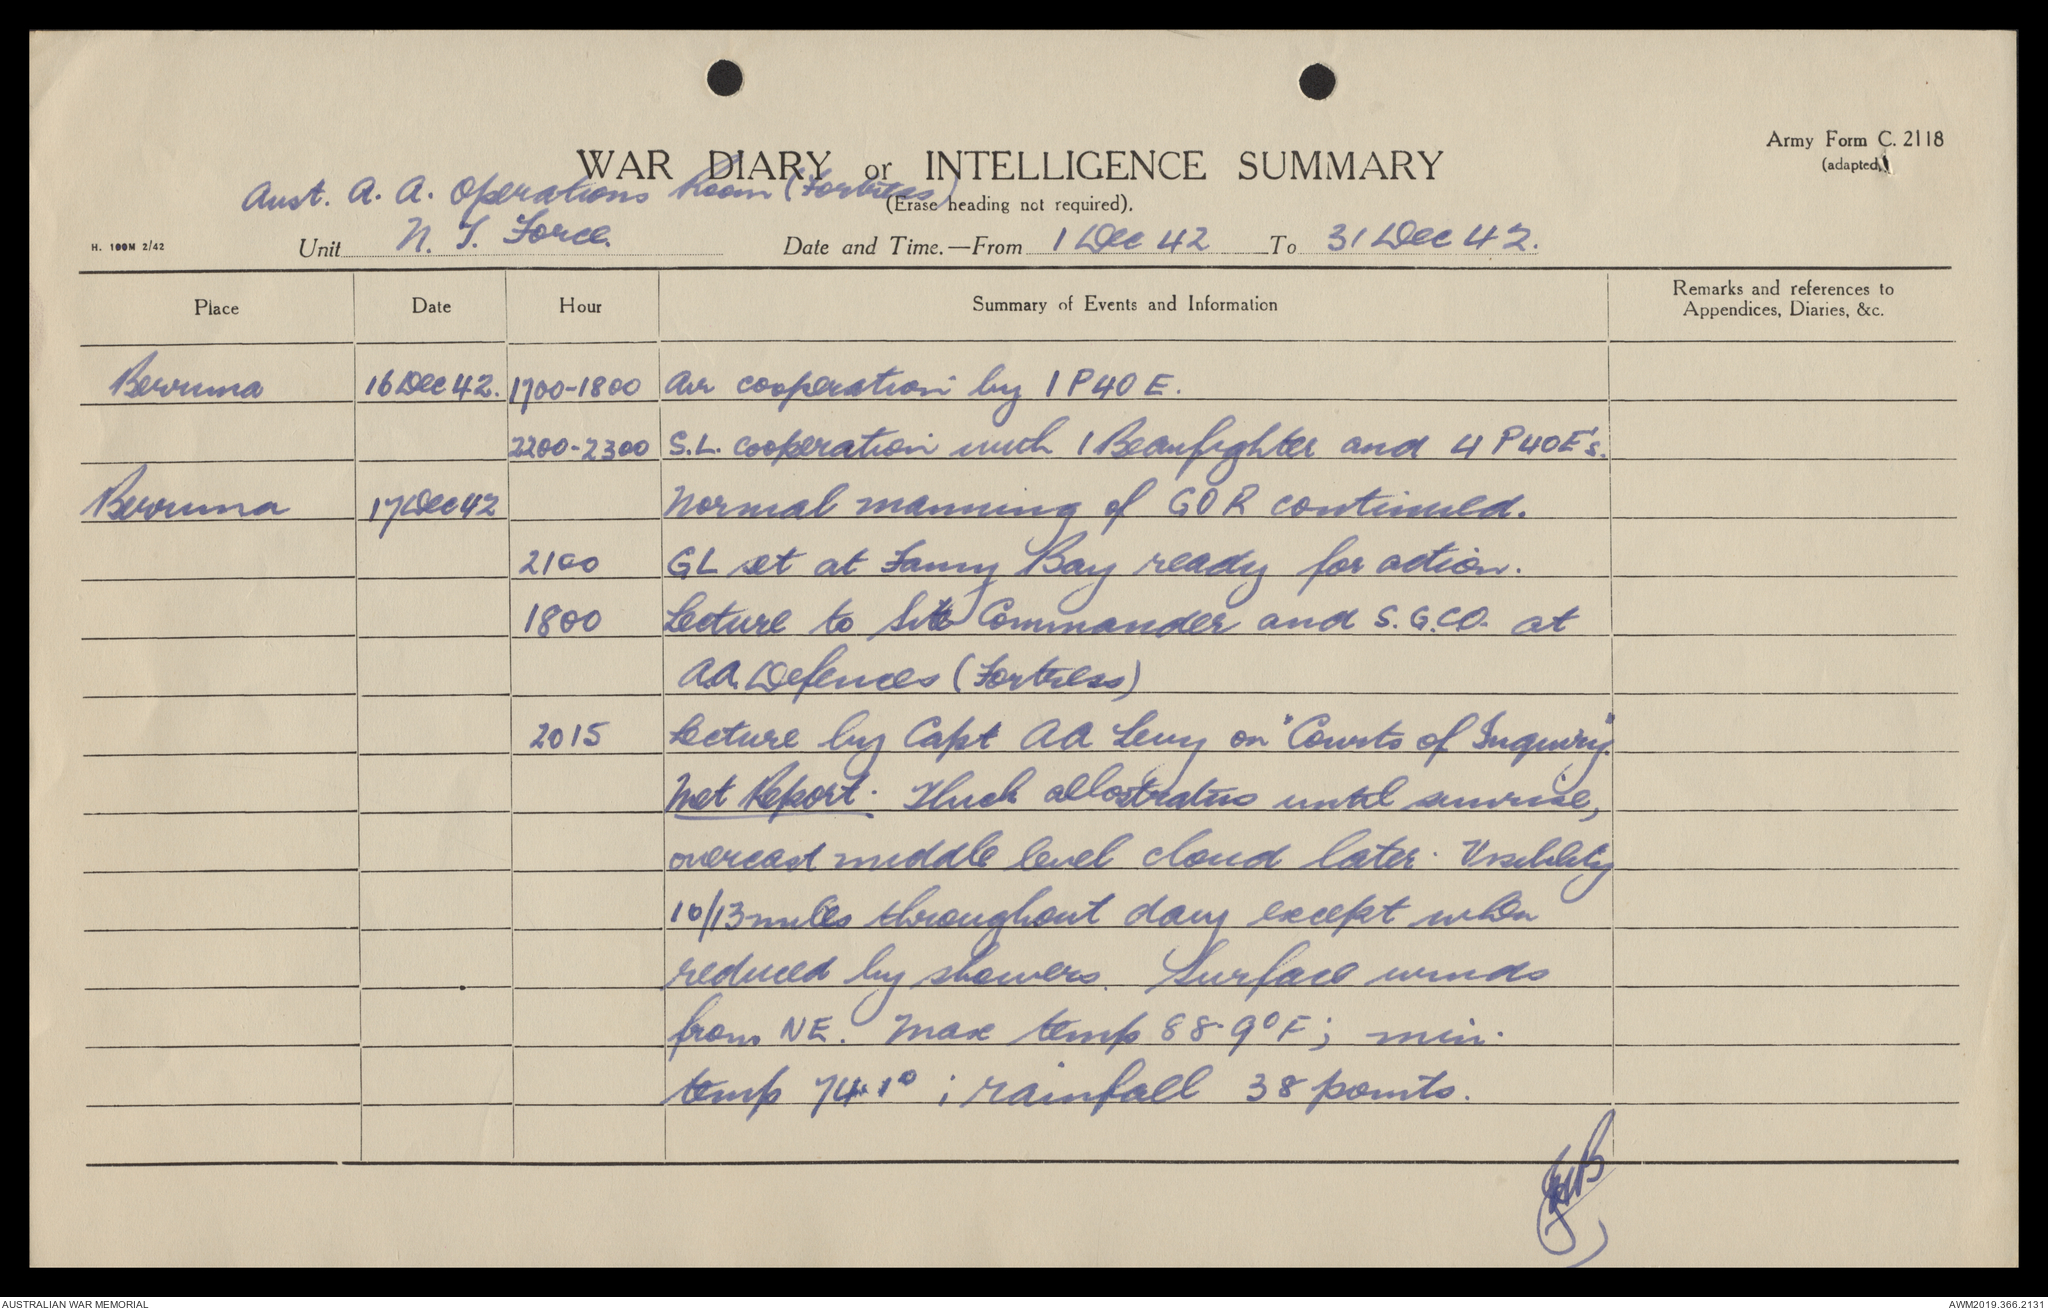 Army Form C. 2118
(adapted)
WAR DIARY or INTELLIGENCE SUMMARY
Aust. A. A. Operations Room (Fortress)
(Erase heading not required).
H. 100M 2/42
Unit N. T. Force. Date and Time.—From 1 Dec 42 To 31 Dec 42.
Place Date Hour Summary of Events and Information Remarks and references to
Appendices, Diaries, &c.
Berrima 16 Dec 42. 1700-1800 Air cooperation by 1 P40 E.
2200-2300 S.L. cooperation with 1 Beaufighter and 4 P40E's.
Berrima 17 Dec 42 Normal manning of GOR continued.
2100 GL set at Fanny Bay ready for action.
1800 Lecture to Site Commander and S.G.C.O. at
A.A. Defences (Fortress)
2015 Lecture by Capt AA Levy on "Courts of Inquiry"
Met Report. Thick allostratus until sunrise,
overcast middle level cloud later. Visibility
10/13 miles throughout day except when
reduced by showers. Surface winds
from NE. Max temp 88.9°F; min.
temp 74.1° ; rainfall 38 points.
AUSTRALIAN WAR MEMORIAL AWM2019.366.2131